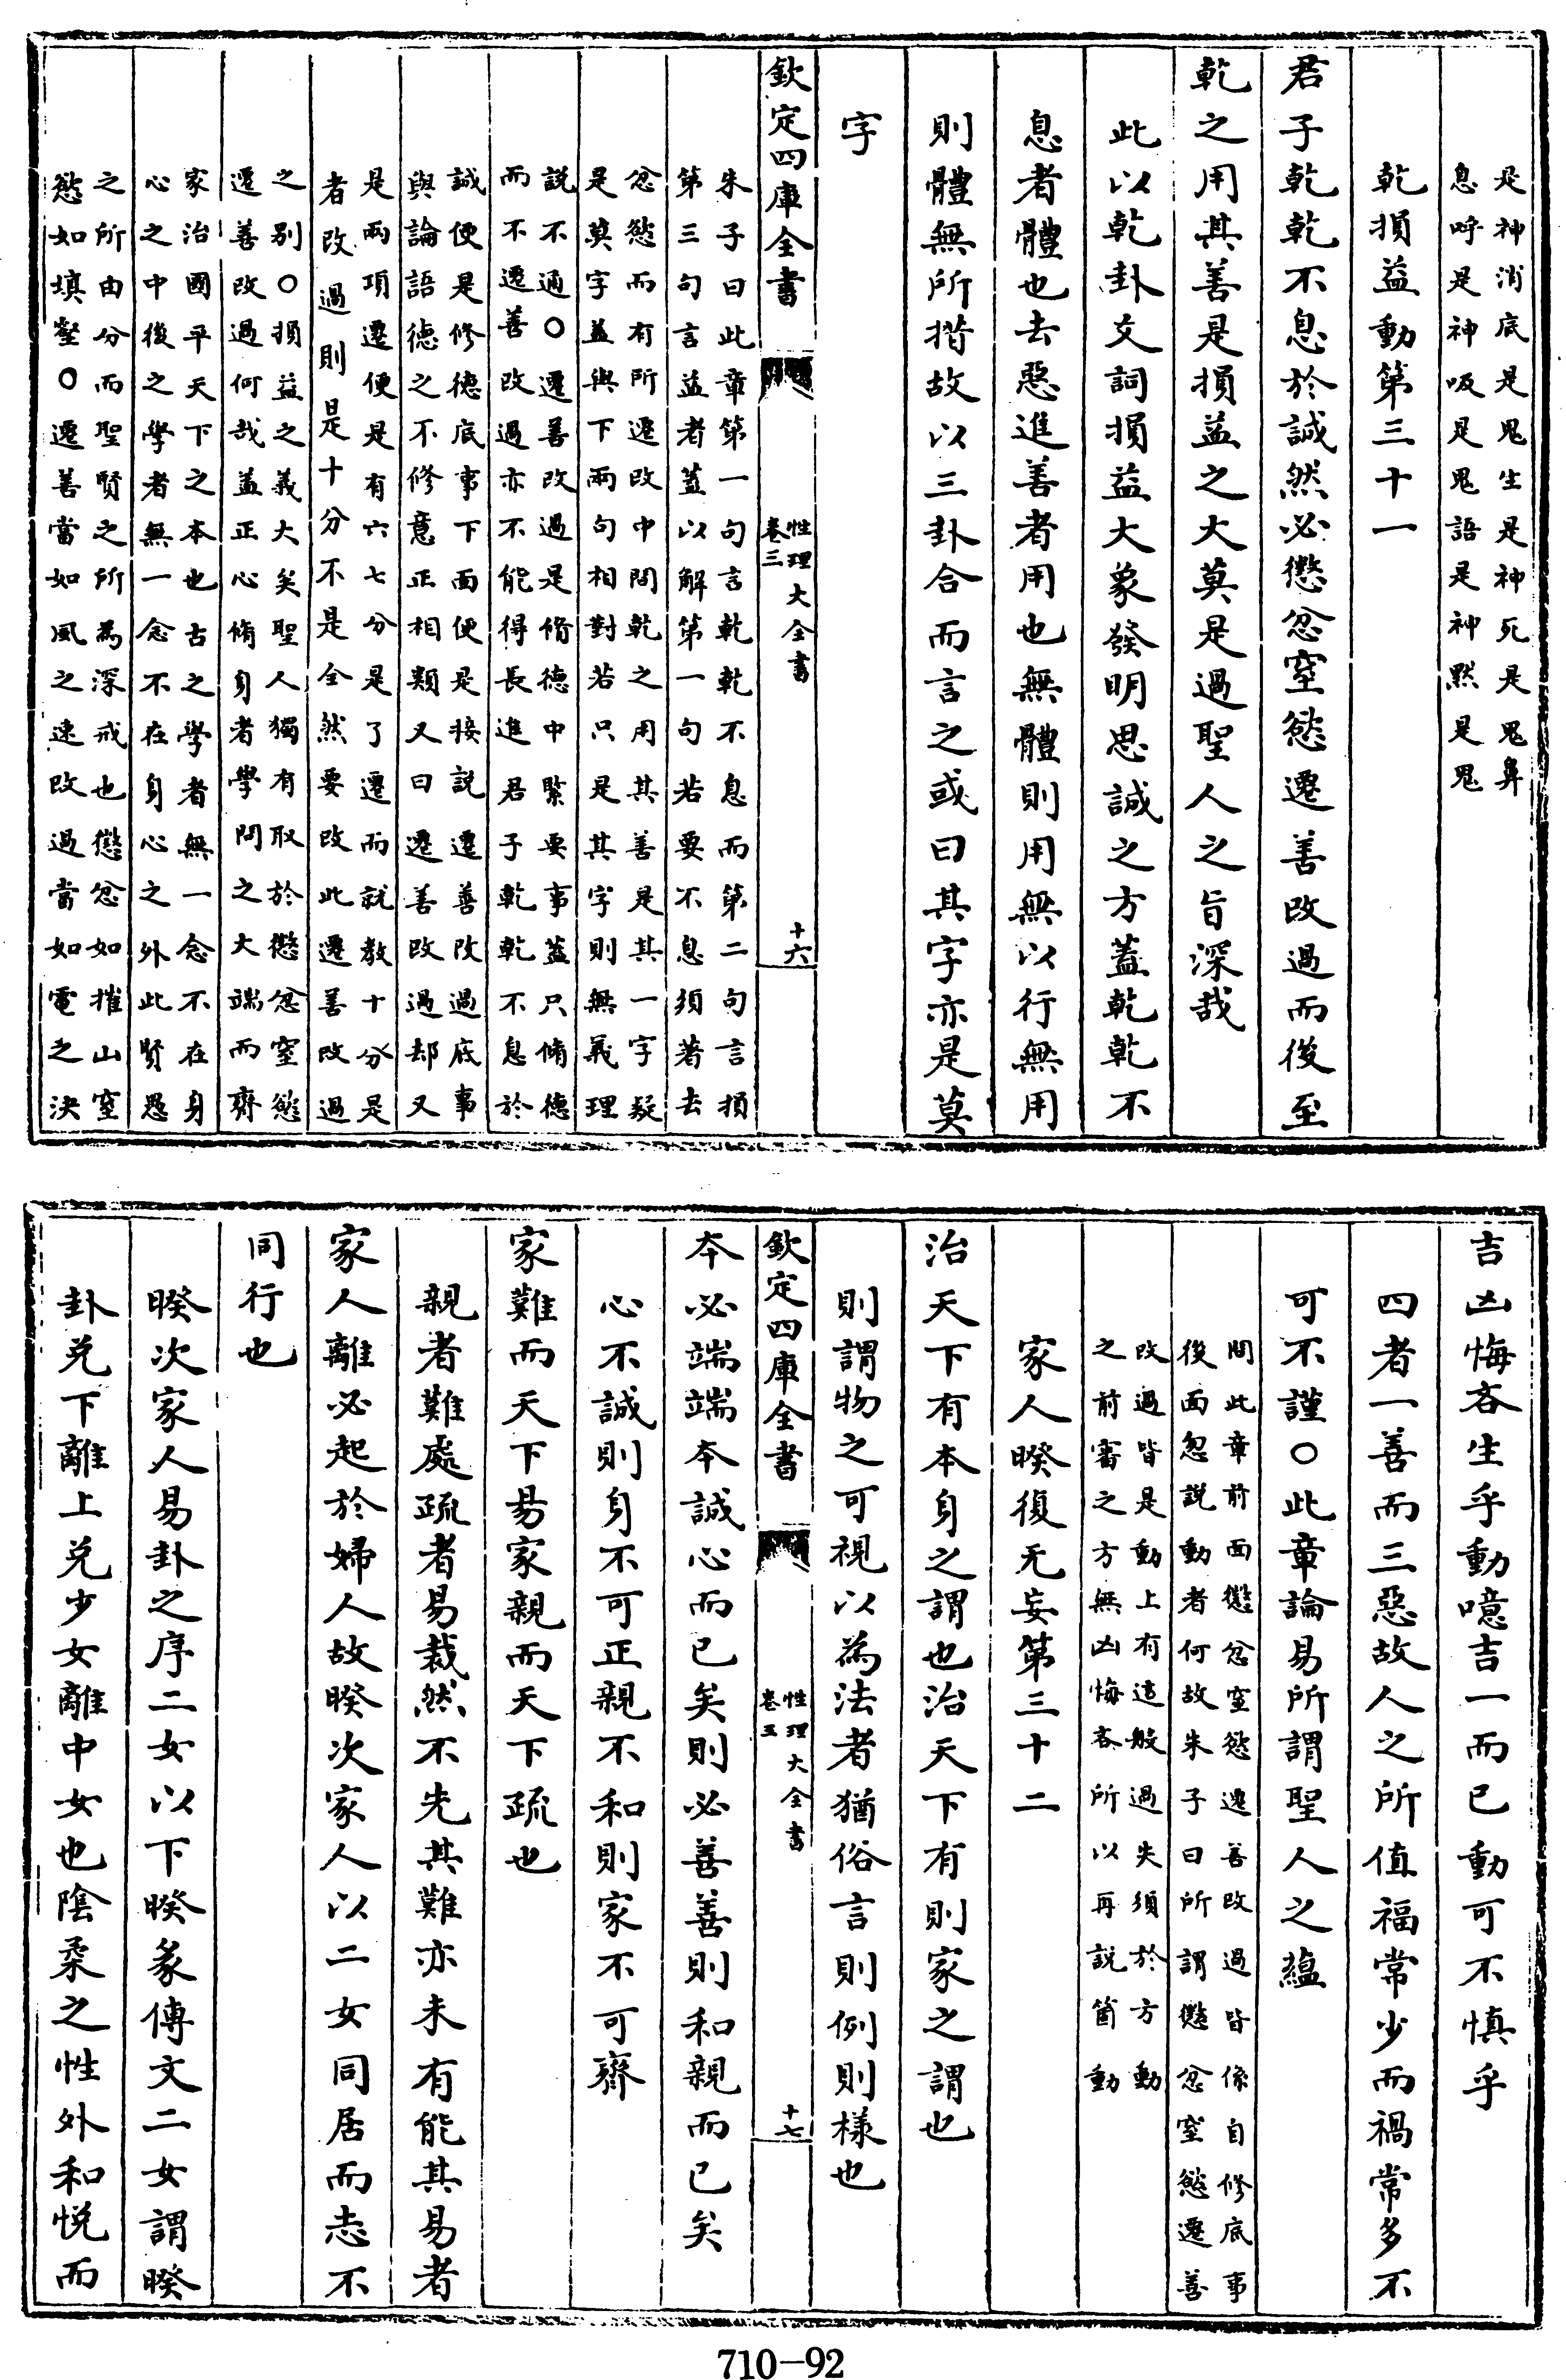 是神消底是鬼生是神死是鬼鼻
息呼是神吸是鬼語是神黙是鬼
乾損益動第三十一
君子乾乾不息於誠然必懲忿窒慾遷善改過而後至
乾之用其善是損益之大莫是過聖人之旨深哉
此以乾卦文詞損益大象發明思誠之方蓋乾乾不
息者體也去惡進善者用也無體則用無以行無用
則體無所措故以三卦合而言之或曰其字亦是莫
字
欽定四庫全書
性理大全書
卷三
十六
朱子曰此章第一句言乾乾不息而第二句言損
第三句言益者蓋以解第一句若要不息須著去
忿慾而有所遷改中間乾之用其善是其一字疑
是莫字蓋與下兩句相對若只是其字則無義理
説不通○遷善改過是脩德中緊要事蓋只脩德
而不遷善改過亦不能得長進君子乾乾不息於
誠便是修德底事下面便是接説遷善改過底事
與論語德之不修意正相類又曰遷善改過却又
是兩項遷便是有六七分是了遷而就教十分是
者改過則是十分不是全然要改此遷善改過
之别○損益之義大矣聖人獨有取於懲忿窒慾
遷善改過何哉蓋正心脩身者學問之大端而齊
家治國平天下之本也古之學者無一念不在身
心之中後之學者無一念不在身心之外此賢愚
之所由分而聖賢之所為深戒也懲忿如摧山窒
慾如填壑○遷善當如風之速改過當如電之決
吉凶悔吝生乎動噫吉一而已動可不慎乎
四者一善而三惡故人之所值福常少而禍常多不
可不謹○此章論易所謂聖人之蘊
問此章前面懲忿窒慾遷善改過皆係自修底事
後面忽説動者何故朱子曰所謂懲忿窒慾遷善
改過皆是動上有這般過失須於方動
之前審之方無凶悔吝所以再説箇動
家人暌復无妄第三十二
治天下有本身之謂也治天下有則家之謂也
則謂物之可視以為法者猶俗言則例則樣也
欽定四庫全書
性理大全書
卷三
十七
本必端端本誠心而已矣則必善善則和親而已矣
心不誠則身不可正親不和則家不可齊
家難而天下易家親而天下疏也
親者難處疏者易裁然不先其難亦未有能其易者
家人離必起於婦人故暌次家人以二女同居而志不
同行也
暌次家人易卦之序二女以下暌彖傳文二女謂暌
卦兑下離上兑少女離中女也陰柔之性外和悦而
710-92